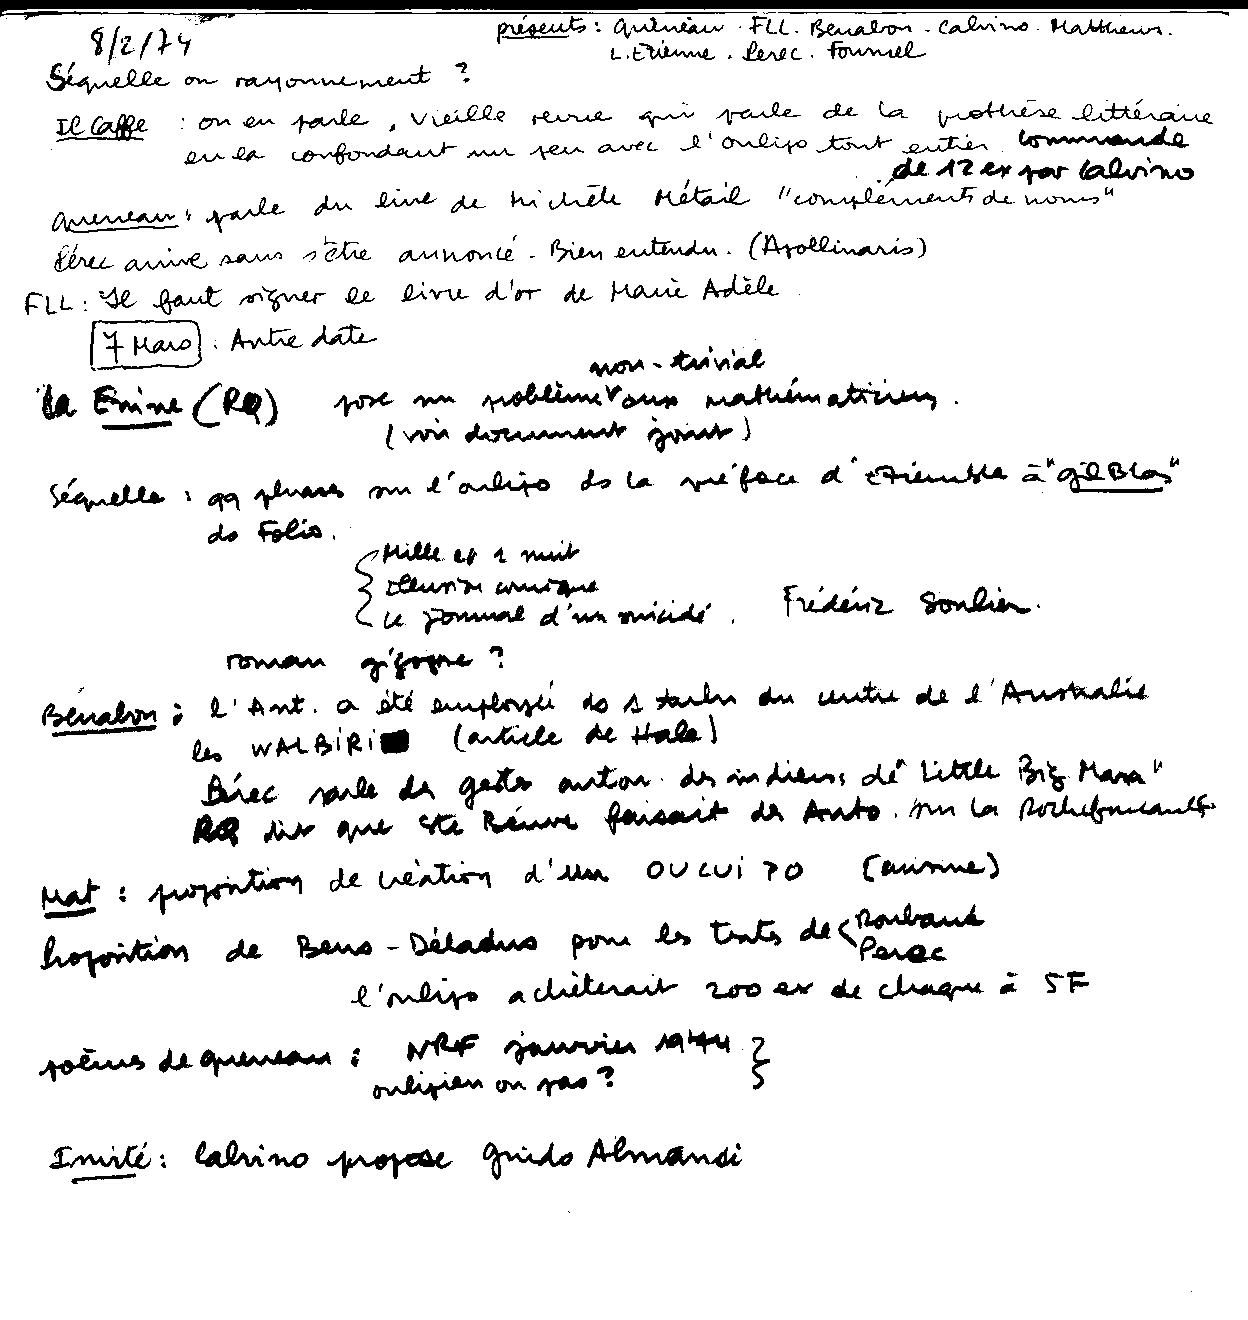 8/2/74
présents : Queneau . FLL . Benabou . Calvino . Matthews .
L. Etienne . Perec . Fournel
Séquelle ou rayonnement ?
Il Caffe : on en parle, vieille revue qui parle de la prothèse littéraire
en la confondant un peu avec l'oulipo tout entier. Commande
de 12 ex par Calvino
Queneau : parle du livre de Michèle Métail "compléments de noms"
Pérec arrive sans s'être annoncé . Bien entendu. (Apollinaris)
FLL : Il faut signer le livre d'or de Marie Adèle
7 Mars : Autre date
non-trivial
la Enime (RQ) pose un problème aux mathématiciens.
(voir document joint)
Séquelle : qq phrases sur l'oulipo ds la préface d'Etiemble à "Gil Blas"
ds Folio.
Mille et 1 nuit
Illusion comique
Le journal d'un suicidé . Frédéric Soulier.
roman gigogne ?
Bénabou : l'Ant. a été employé ds 1 du centre de l'Australie
les WALBIRI (article de Hale)
Pérec parle des gestes anton. des indiens de "Little Big Man"
RQ dit que Ste Beuve faisait des Anto. sur La Rochefoucault
Mat : proposition de création d'un OUCUIPO (cuisine)
Proposition de Bens - Déladus pour les textes de Roubaud
Perec
l'oulipo achèterait 200 ex de chaque à 5F
poèmes de Queneau : NRF janvier 1944
oulipien ou pas ?
Invité : Calvino propose Guido Almansi